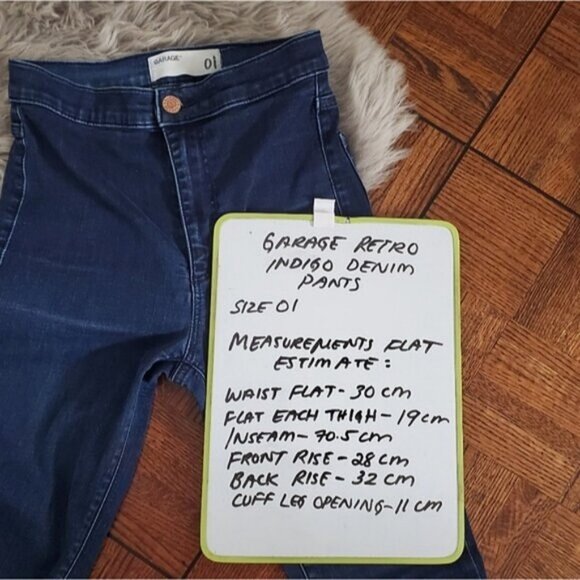 GARAGE
01
GARAGE RETRO
INDIGO DENIM
PANTS
SIZE 01
MEASUREMENTS FLAT
ESTIMATE:
WAIST FLAT - 30 cm
FLAT EACH THIGH - 19cm
INSEAM - 70.5cm
FRONT RISE - 28 cm
BACK RISE - 32 cm
CUFF LEG OPENING - 11 cm